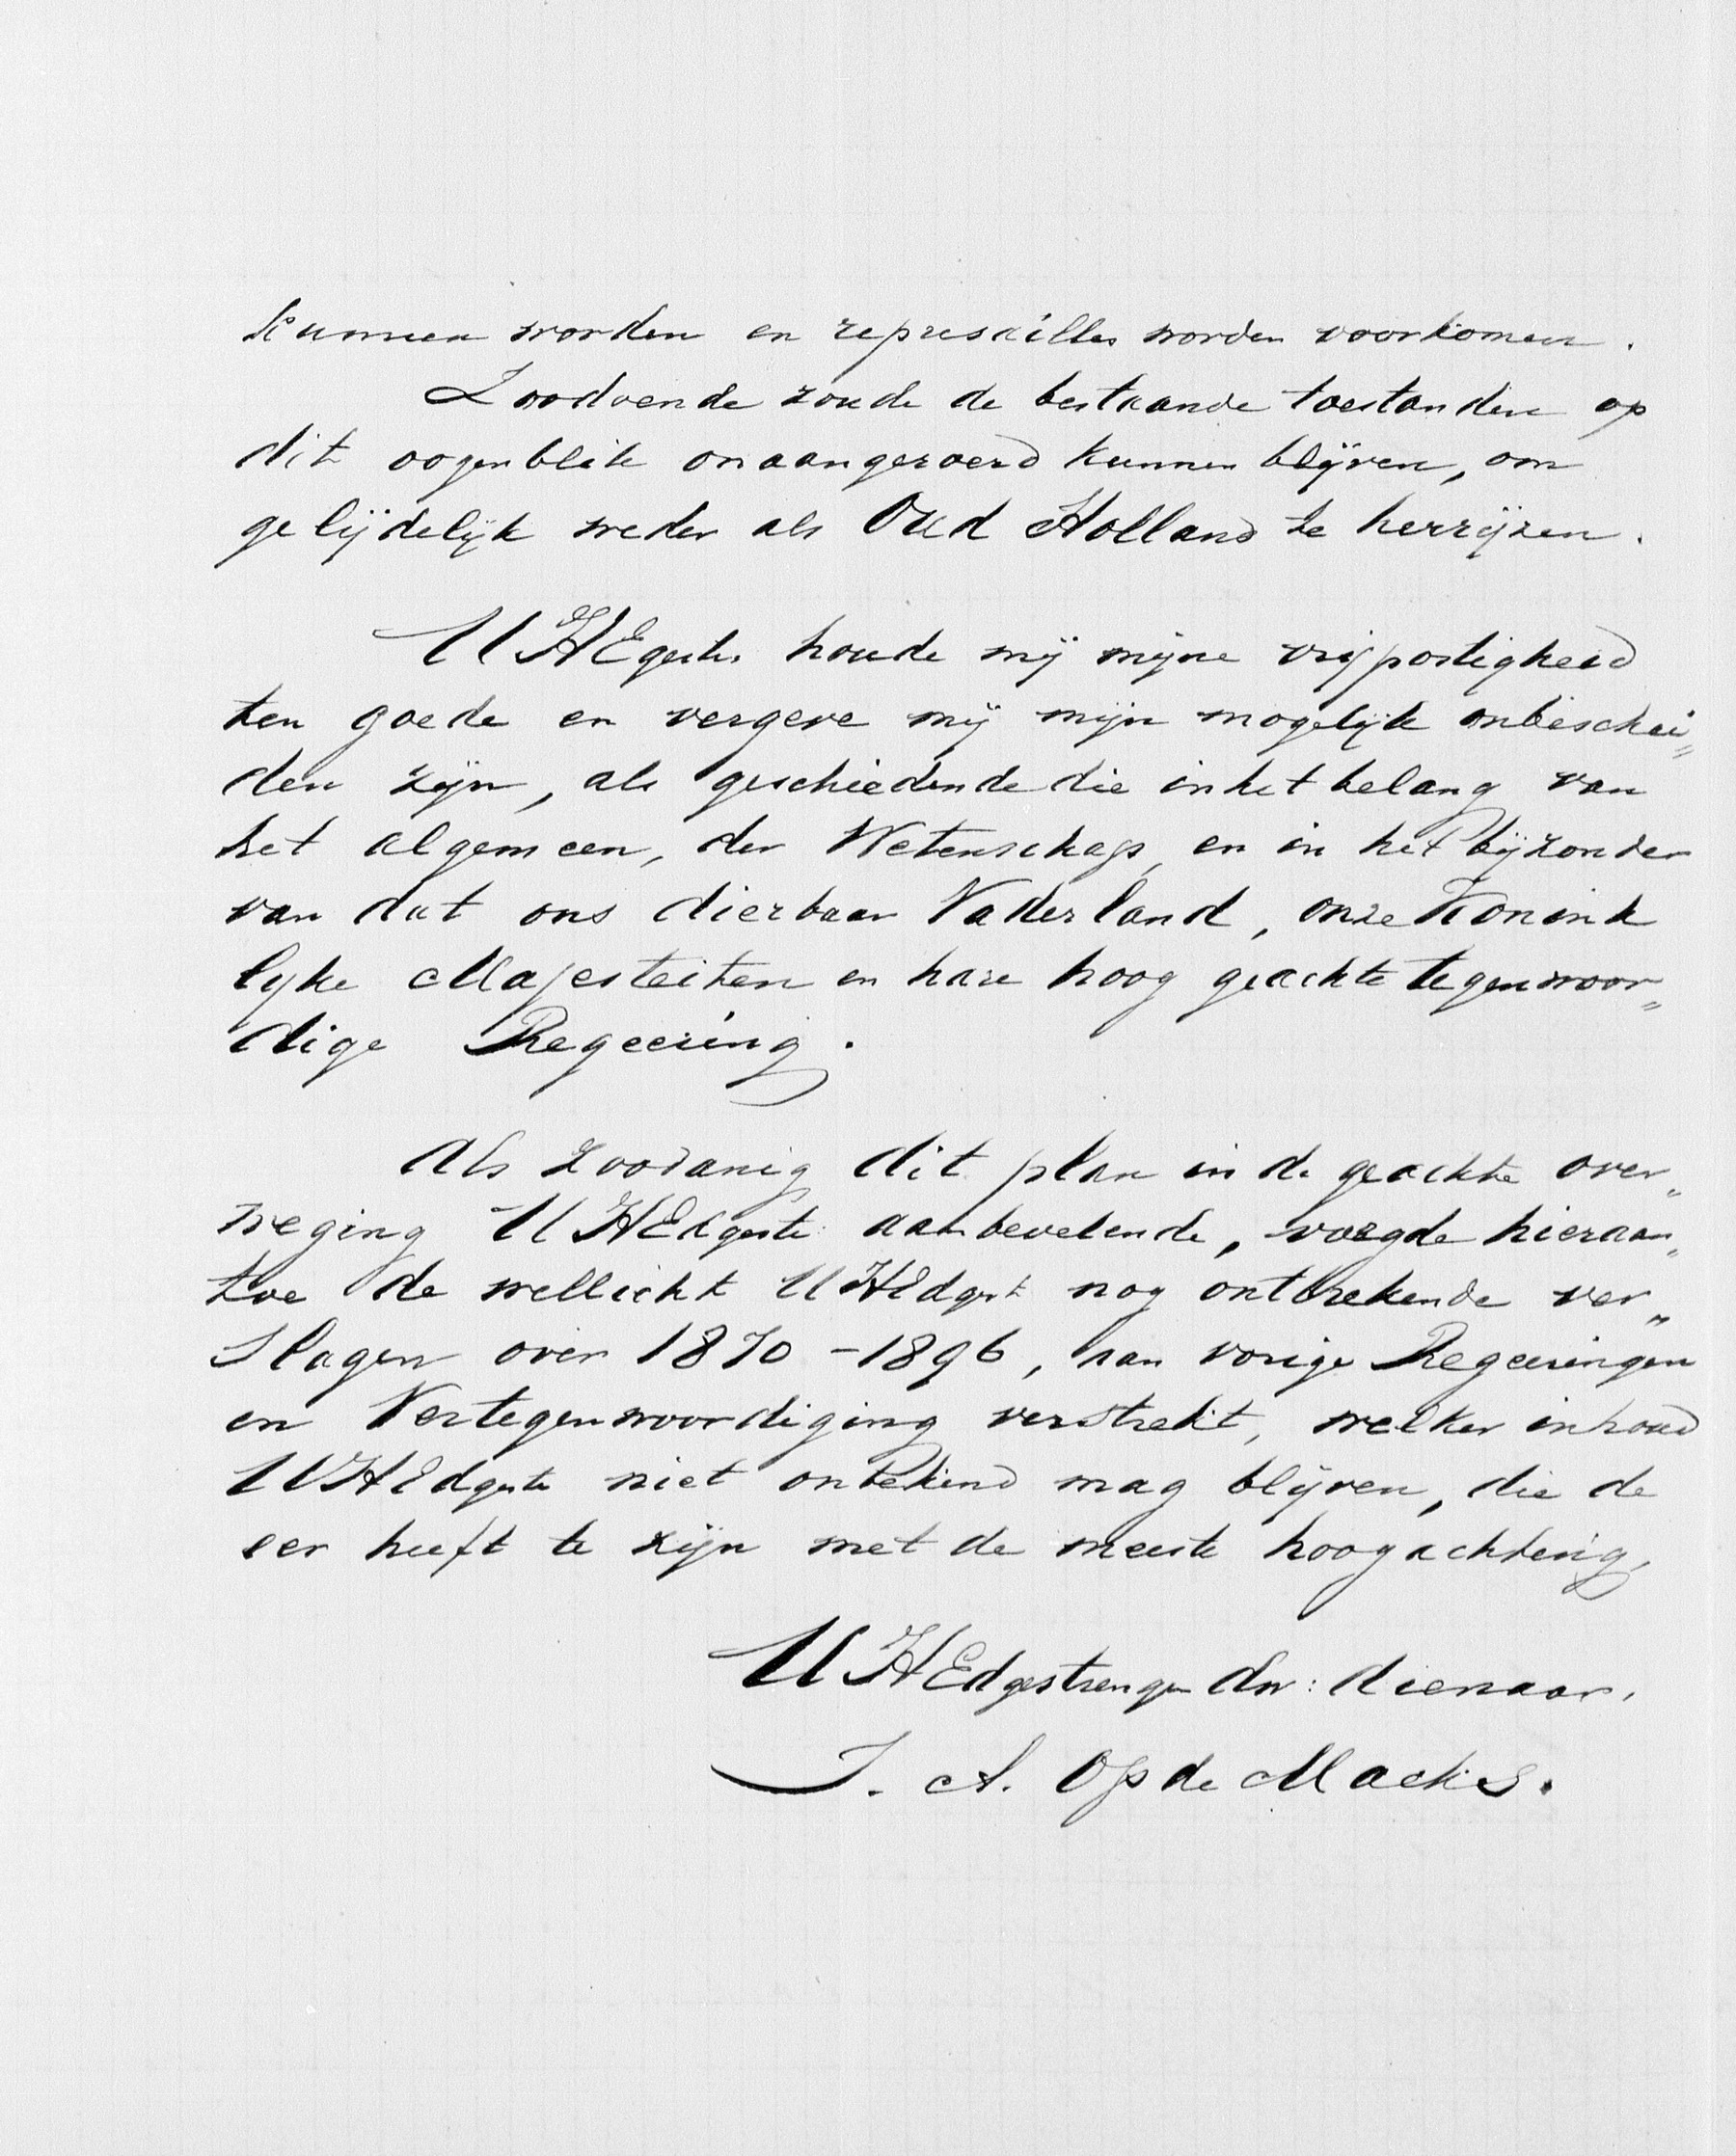 kunnen worden en represailles worden voorkomen.
Zoodoende zoude de bestaande toestanden op
dit oogenblik onaangeroerd kunnen blijven, om
gelijdelijk weder als Oud Holland te herrijzen.
UHEgestr. houde mij mijne vrijpostigheid
ten goede en vergeve mij mijn mogelijk onbeschei„
den zijn, als geschiedende die in het belang van
het algemeen, der Wetenschap, en in het bijzonder
van dat ons dierbaar Vaderland, onze Konink
lyke Majesteiten en hare hoog geachte tegenwoor„
dige Regeering.
Als zoodanig dit plan in de geachte over„
weging UHEdgestr: aanbevelende, voegde hieraan„
toe de wellicht UHEdgestr nog ontbrekende ver„
slagen over 1870-1896, aan vorige Regeeringen
en Vertegenwoordiging verstrekt, welker inhoud
UHEdgestr niet onbekend mag blijven, die de
eer heeft te zijn met de meeste hoogachting,
UHEdgestrenge dw: dienaar,
J. A. Op de Macks.